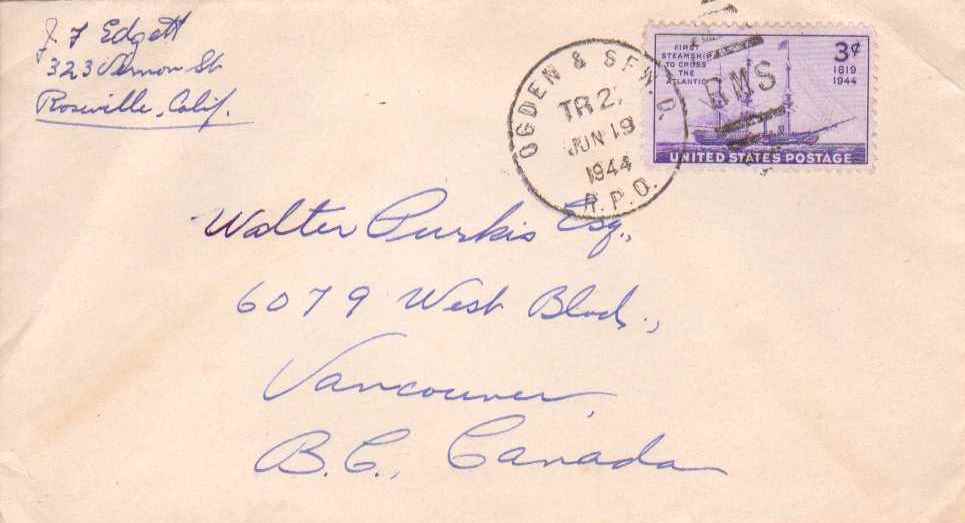 J. F Edgett
323 Vernon St.
Roseville, Calif.
OGDEN & S.F. W.D.
TR 2.
JUN 19
1944
R.P.O.
RMS
FIRST
STEAMSHIP
TO CROSS
THE
ATLANTIC
3¢
1819
1944
UNITED STATES POSTAGE
Walter Purkis Esq.,
6079 West Blvd.,
Vancouver,
B.C., Canada